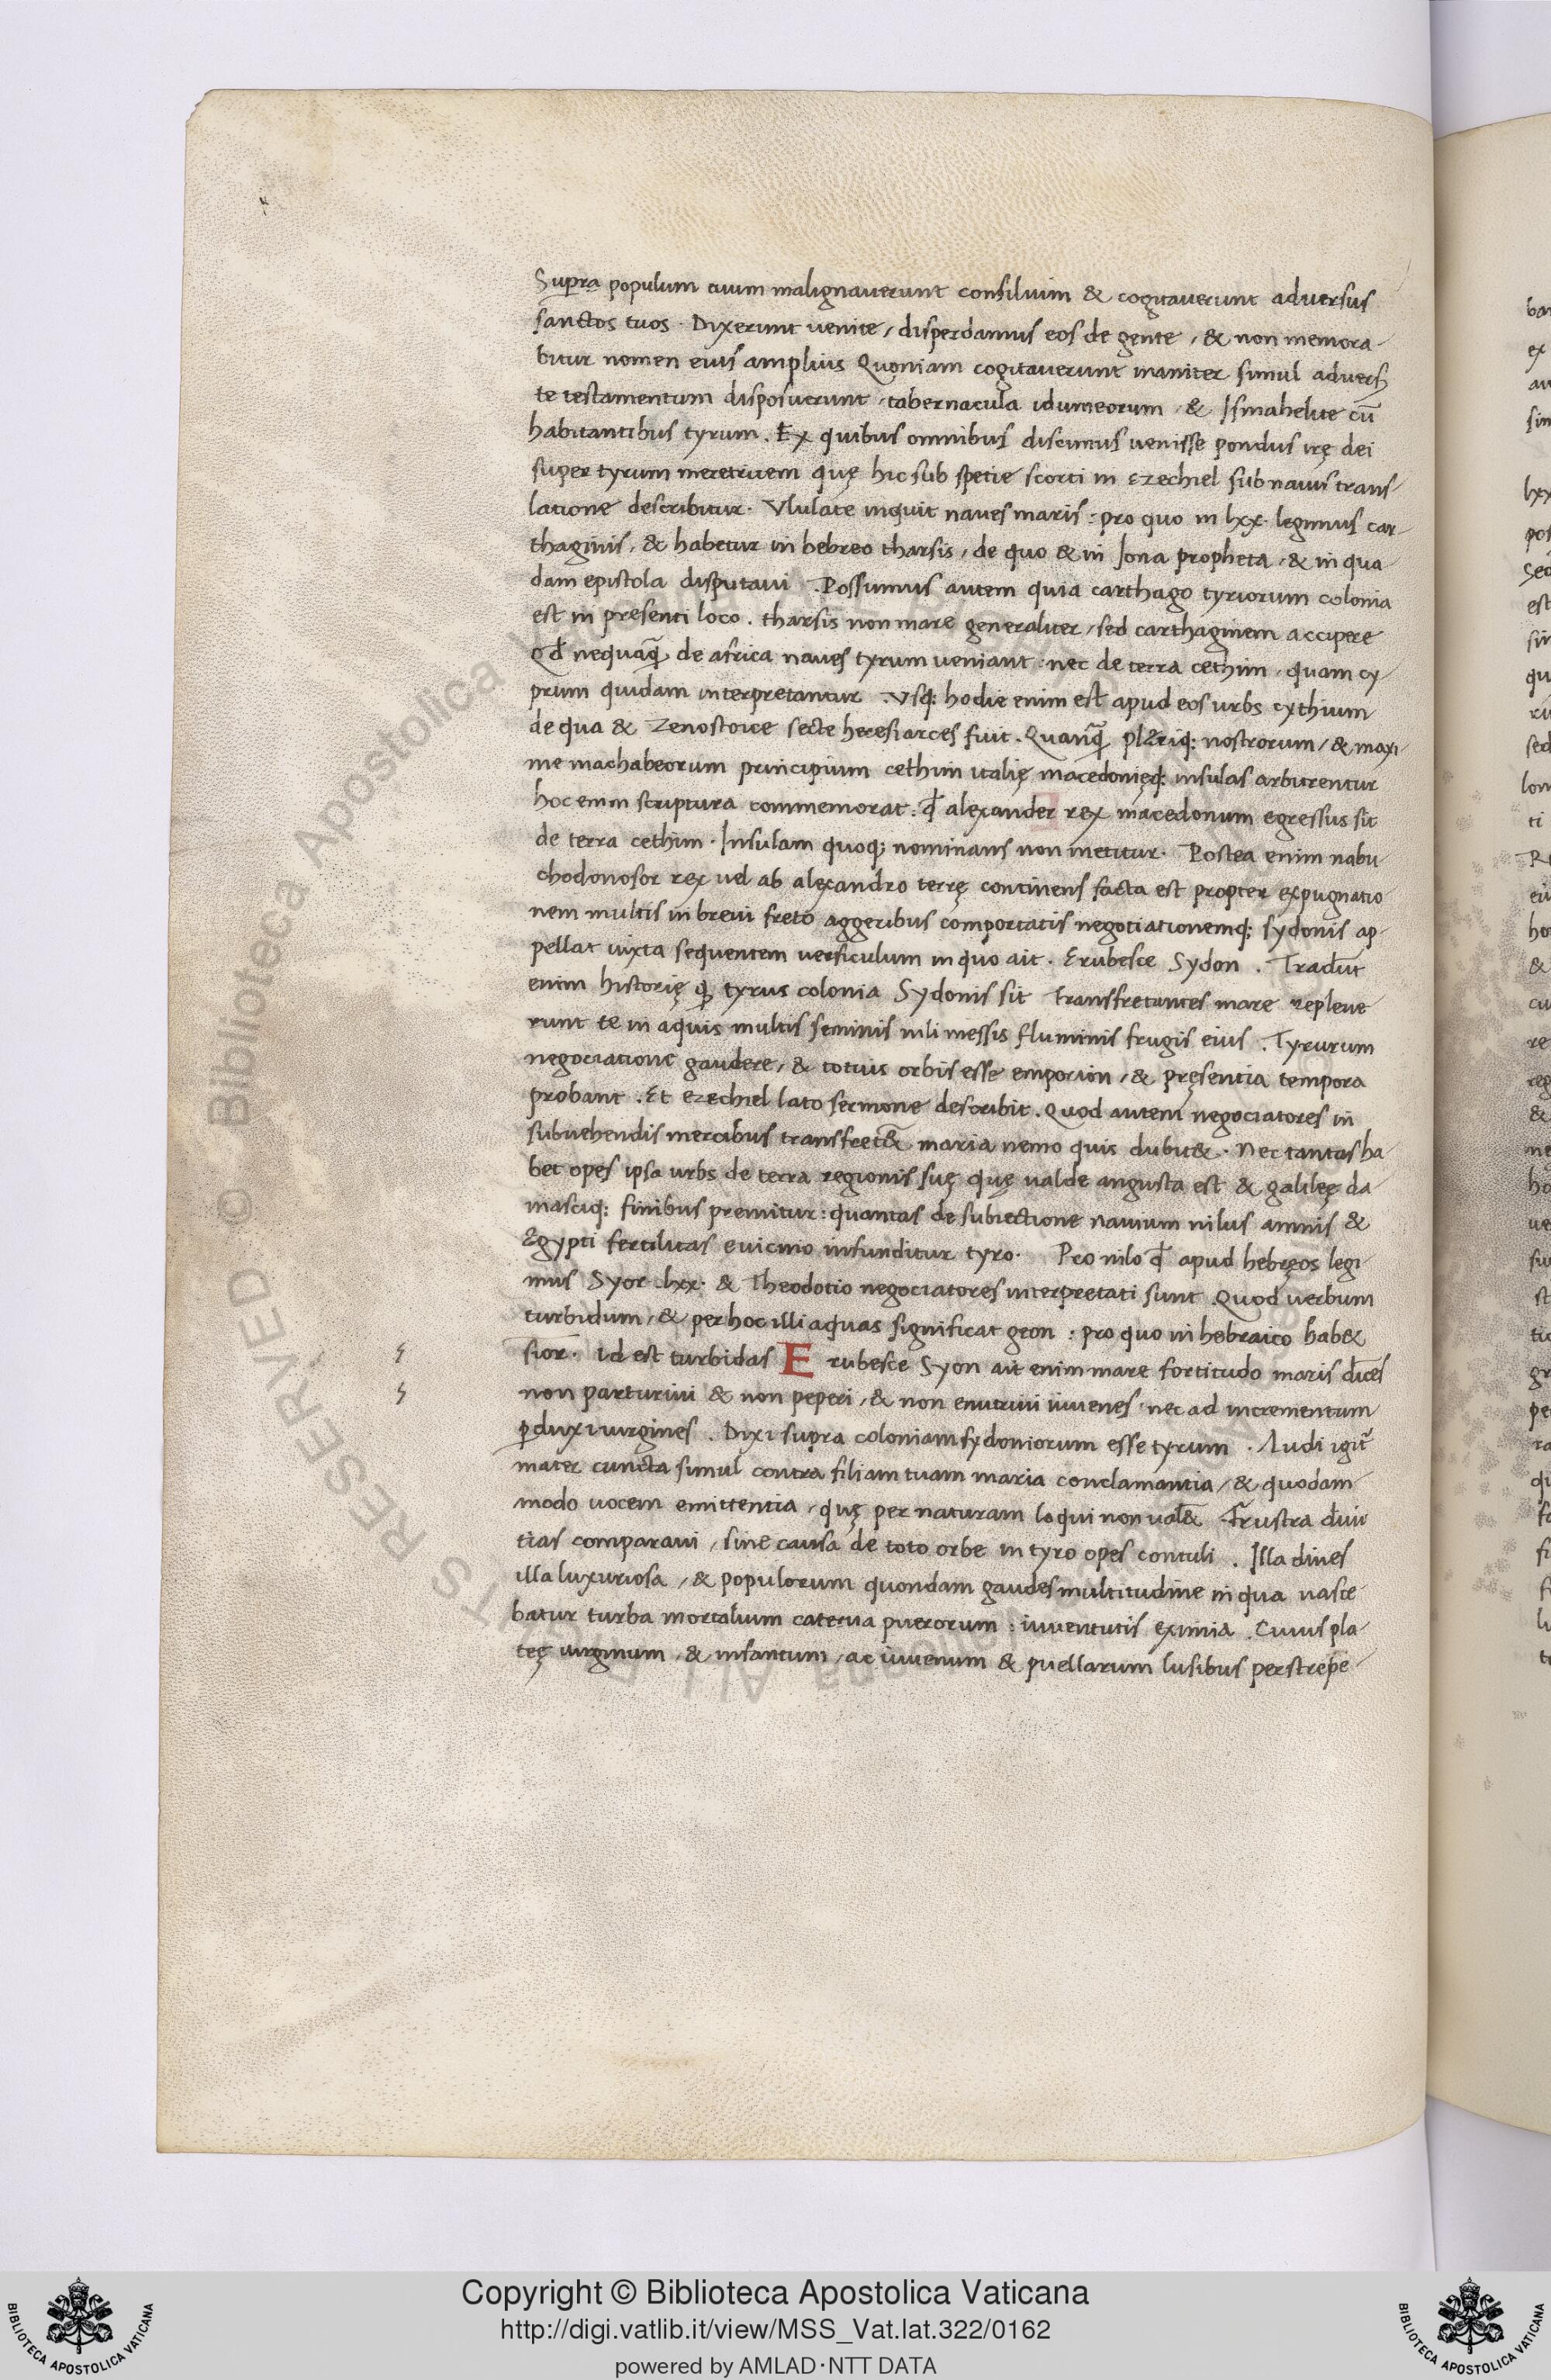 Supra populum tuum malignauerunt consilium & cogitauerunt adversus
sanctos tuos . Dixerunt uenite / disperdamus eos de gente , & non memora-
bitur nomen eius amplius Quoniam cogitauerunt inaniter simul advers
te testamentum disposuerunt , tabernacula idumeorum , & Ismahelite cū
habitantibus tyrum . Ex quibus omnibus discimus uenisse pondus irę dei
super tyrum meretricem quę hic sub spetie scorti in ezechiel sub nauis trans-
latione describitur . Vlulate inquit naues maris : pro quo in lxx . legimus car-
thaginis , & habetur in hebreo tharsis , de quo & in Jona propheta , & in qua-
dam epistola disputaui . Possumus autem quia carthago tyriorum colonia
est in presenti loco . tharsis non mare generaliter , sed carthaginem accipere
qđ nequaq̄ de africa naues tyrum ueniant : nec de terra cethim , quam cy-
prum quidam interpretantur . Vsq; hodie enim est apud eos urbs cythium
de qua & Zenostoice secte heresiarces fuit . Quanq̄ pleriq; nostrorum , & maxi-
me machabeorum principium cethim italię macedonięq; insulas arbitrentur
hoc enim scriptura commemorat : qđ alexander rex macedonum egressus sit
de terra cethim . Insulam quoq; nominans non metitur . Postea enim nabu-
chodonosor rex uel ab alexandro terrę continens facta est propter expugnatio
nem multis in breui freto aggeribus comportatis negotiationemq; sydonis ap-
pellat iuxta sequentem uersiculum in quo ait . Erubesce Sydon . Tradūt
enim historię q̄ tyrus colonia Sydonis sit Transfretantes mare repleue-
runt te in aquis multis seminis nili messis fluminis frugis eius . Tyrurum
negociatione gaudere , & totius orbis esse emporion , & pręsentia tempora
probant . Et ezechiel lato sermone describit . Quod autem negociatores in
subuehendis mercibus transfret& maria nemo quis dubit& . Nec tantas ha-
bet opes ipsa urbs de terra regionis suę quę ualde angusta est & galileę da-
masciq; finibus premitur : quantas de subiectione nauium nilus amnis &
Egypti fertilitas e uicino infunditur tyro . Pro nilo qđ apud hebręos legi-
mus Syor . lxx . & Theodotio negociatores interpretati sunt Quod uerbum
turbidum , & per hoc illi aquas significat geon : pro quo in hebraico hab&
sior . Id est turbidas E rubesce Syon ait enim mare fortitudo maris dices
non parturiui & non peperi , & non enutriui iuuenes , nec ad incrementum
ꝑduxi uirgines . Dixi supra coloniam sydoniorum esse tyrum . Audi igit̄
mater cuncta simul contra filiam tuam maria conclamantia , & quodam-
modo uocem emittentia , quę per naturam loqui non ual& Frustra diui-
tias comparaui , sine causa de toto orbe in tyro opes contuli . Illa diues
illa luxuriosa , & populorum quondam gaudes multitudine in qua nasce-
batur turba mortalium caterua puerorum : iuuentutis eximia . Cuius pla-
teę uirginum , & infantum , ac iuuenum & puellarum lusibus perstrepe-
Copyright © Biblioteca Apostolica Vaticana
http://digi.vatlib.it/view/MSS_Vat.lat.322/0162
powered by AMLAD·NTT DATA